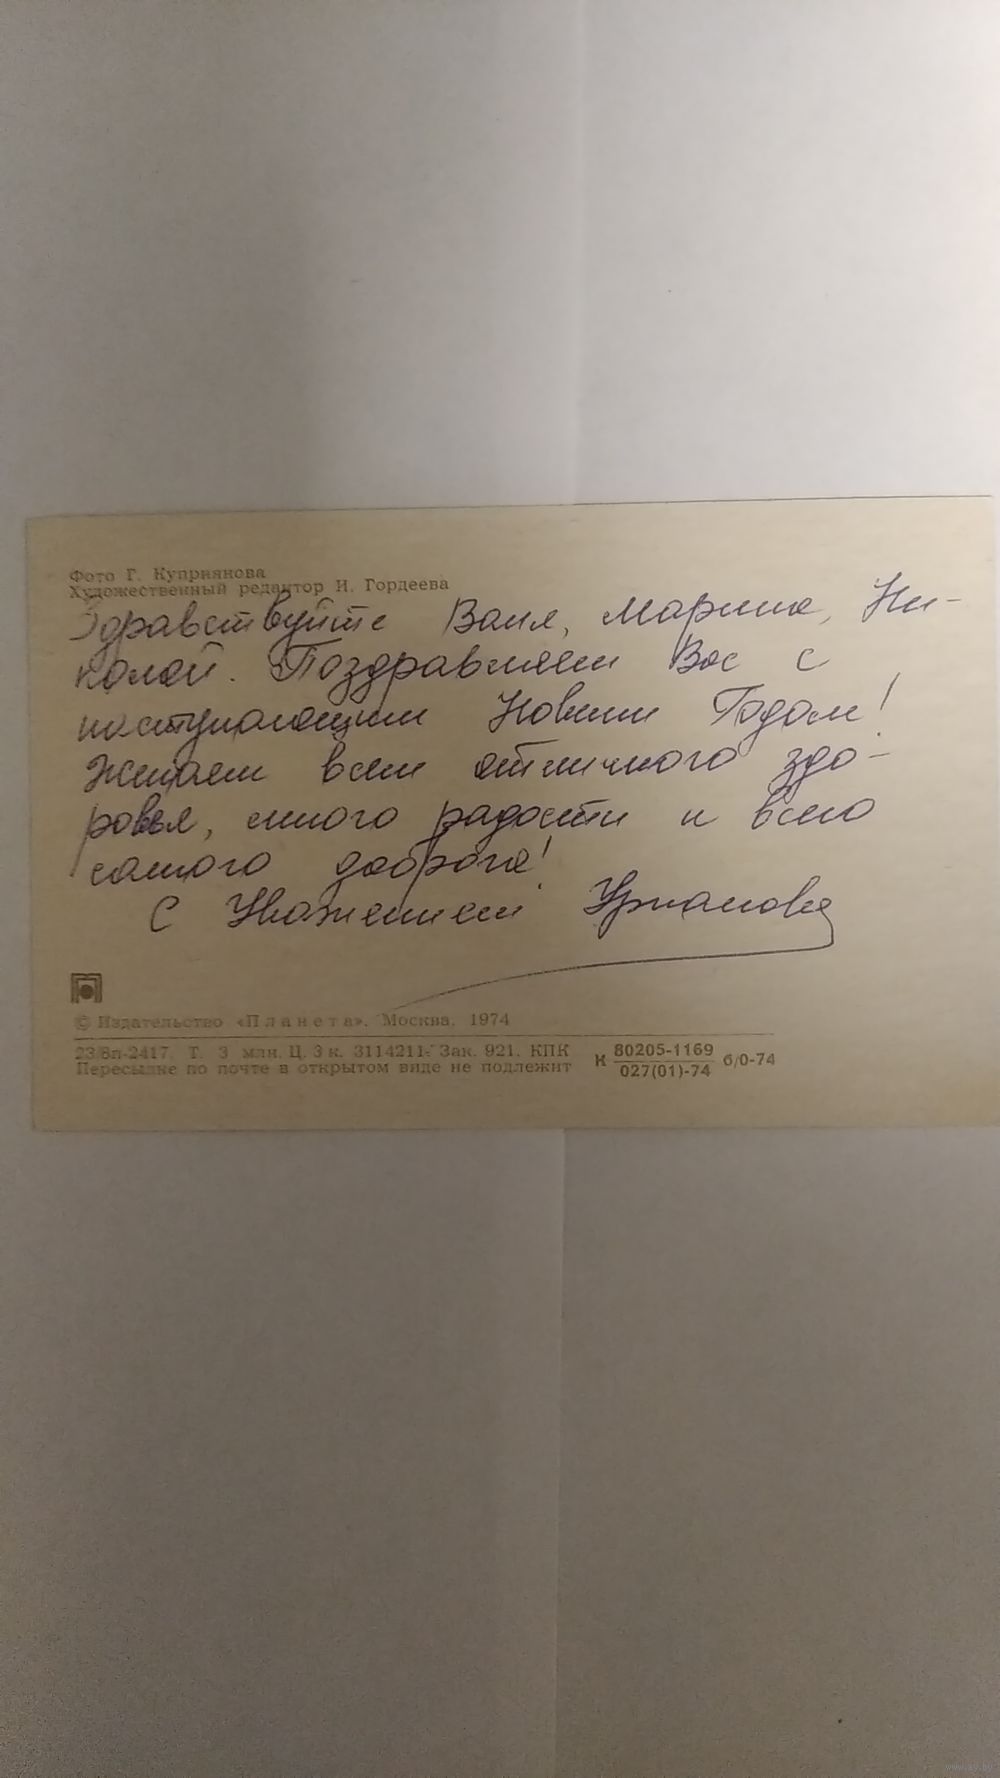 Фото Г. Куприянова
Художественный редактор И. Гордеева
Здравствуйте Ваня, Марина, Ни-
колай. Поздравляем Вас с
наступающим Новым Годом!
Желаем всем отличного здо-
ровья, много радости и всего
самого доброго!
С Уважением
© Издательство «Планета». Москва. 1974
23/8п-2417. Т. 3 млн. Ц. 3 к. 3114211. Зак. 921. КПК
Пересылке по почте в открытом виде не подлежит
К 80205-1169
027(01)-74 б/0-74